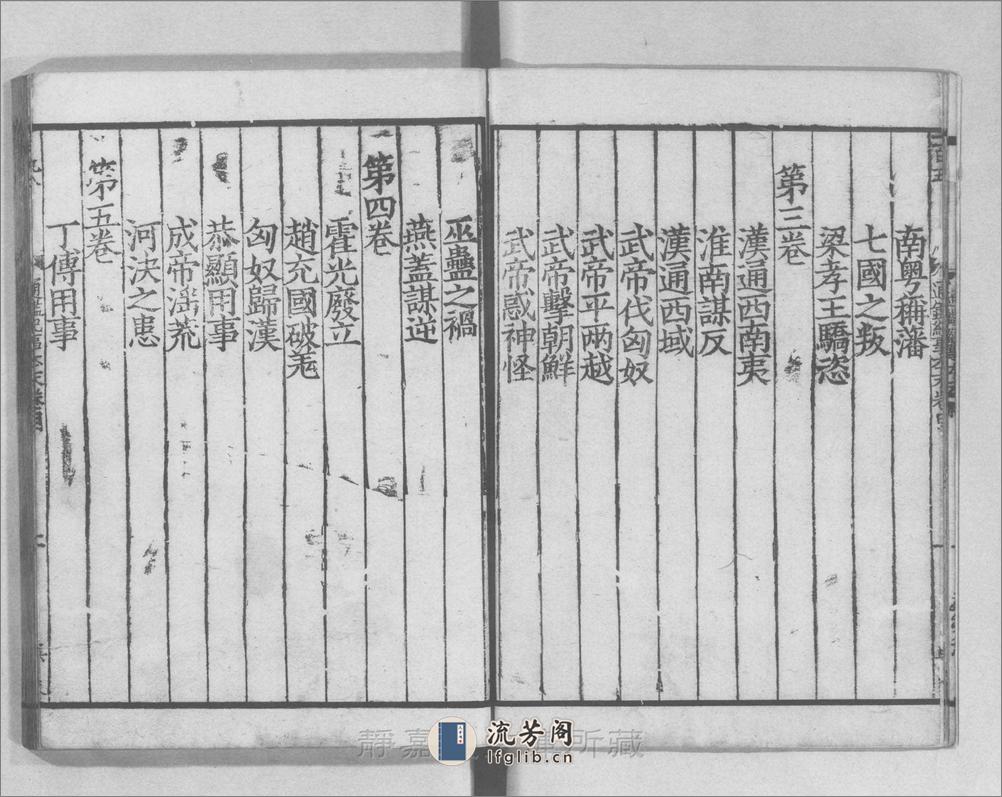 南粤稱藩
七國之叛
梁孝王驕恣
第三卷
漢通西南夷
淮南謀反
漢通西域
武帝伐匈奴
武帝平兩越
武帝擊朝鮮
武帝惑神怪
巫蠱之禍
燕蓋謀逆
第四卷
霍光廢立
趙充國破羌
匈奴歸漢
恭顯用事
成帝滛荒
河決之患
第五卷
丁傅用事
流芳阁
lfglib.cn
靜嘉
所藏